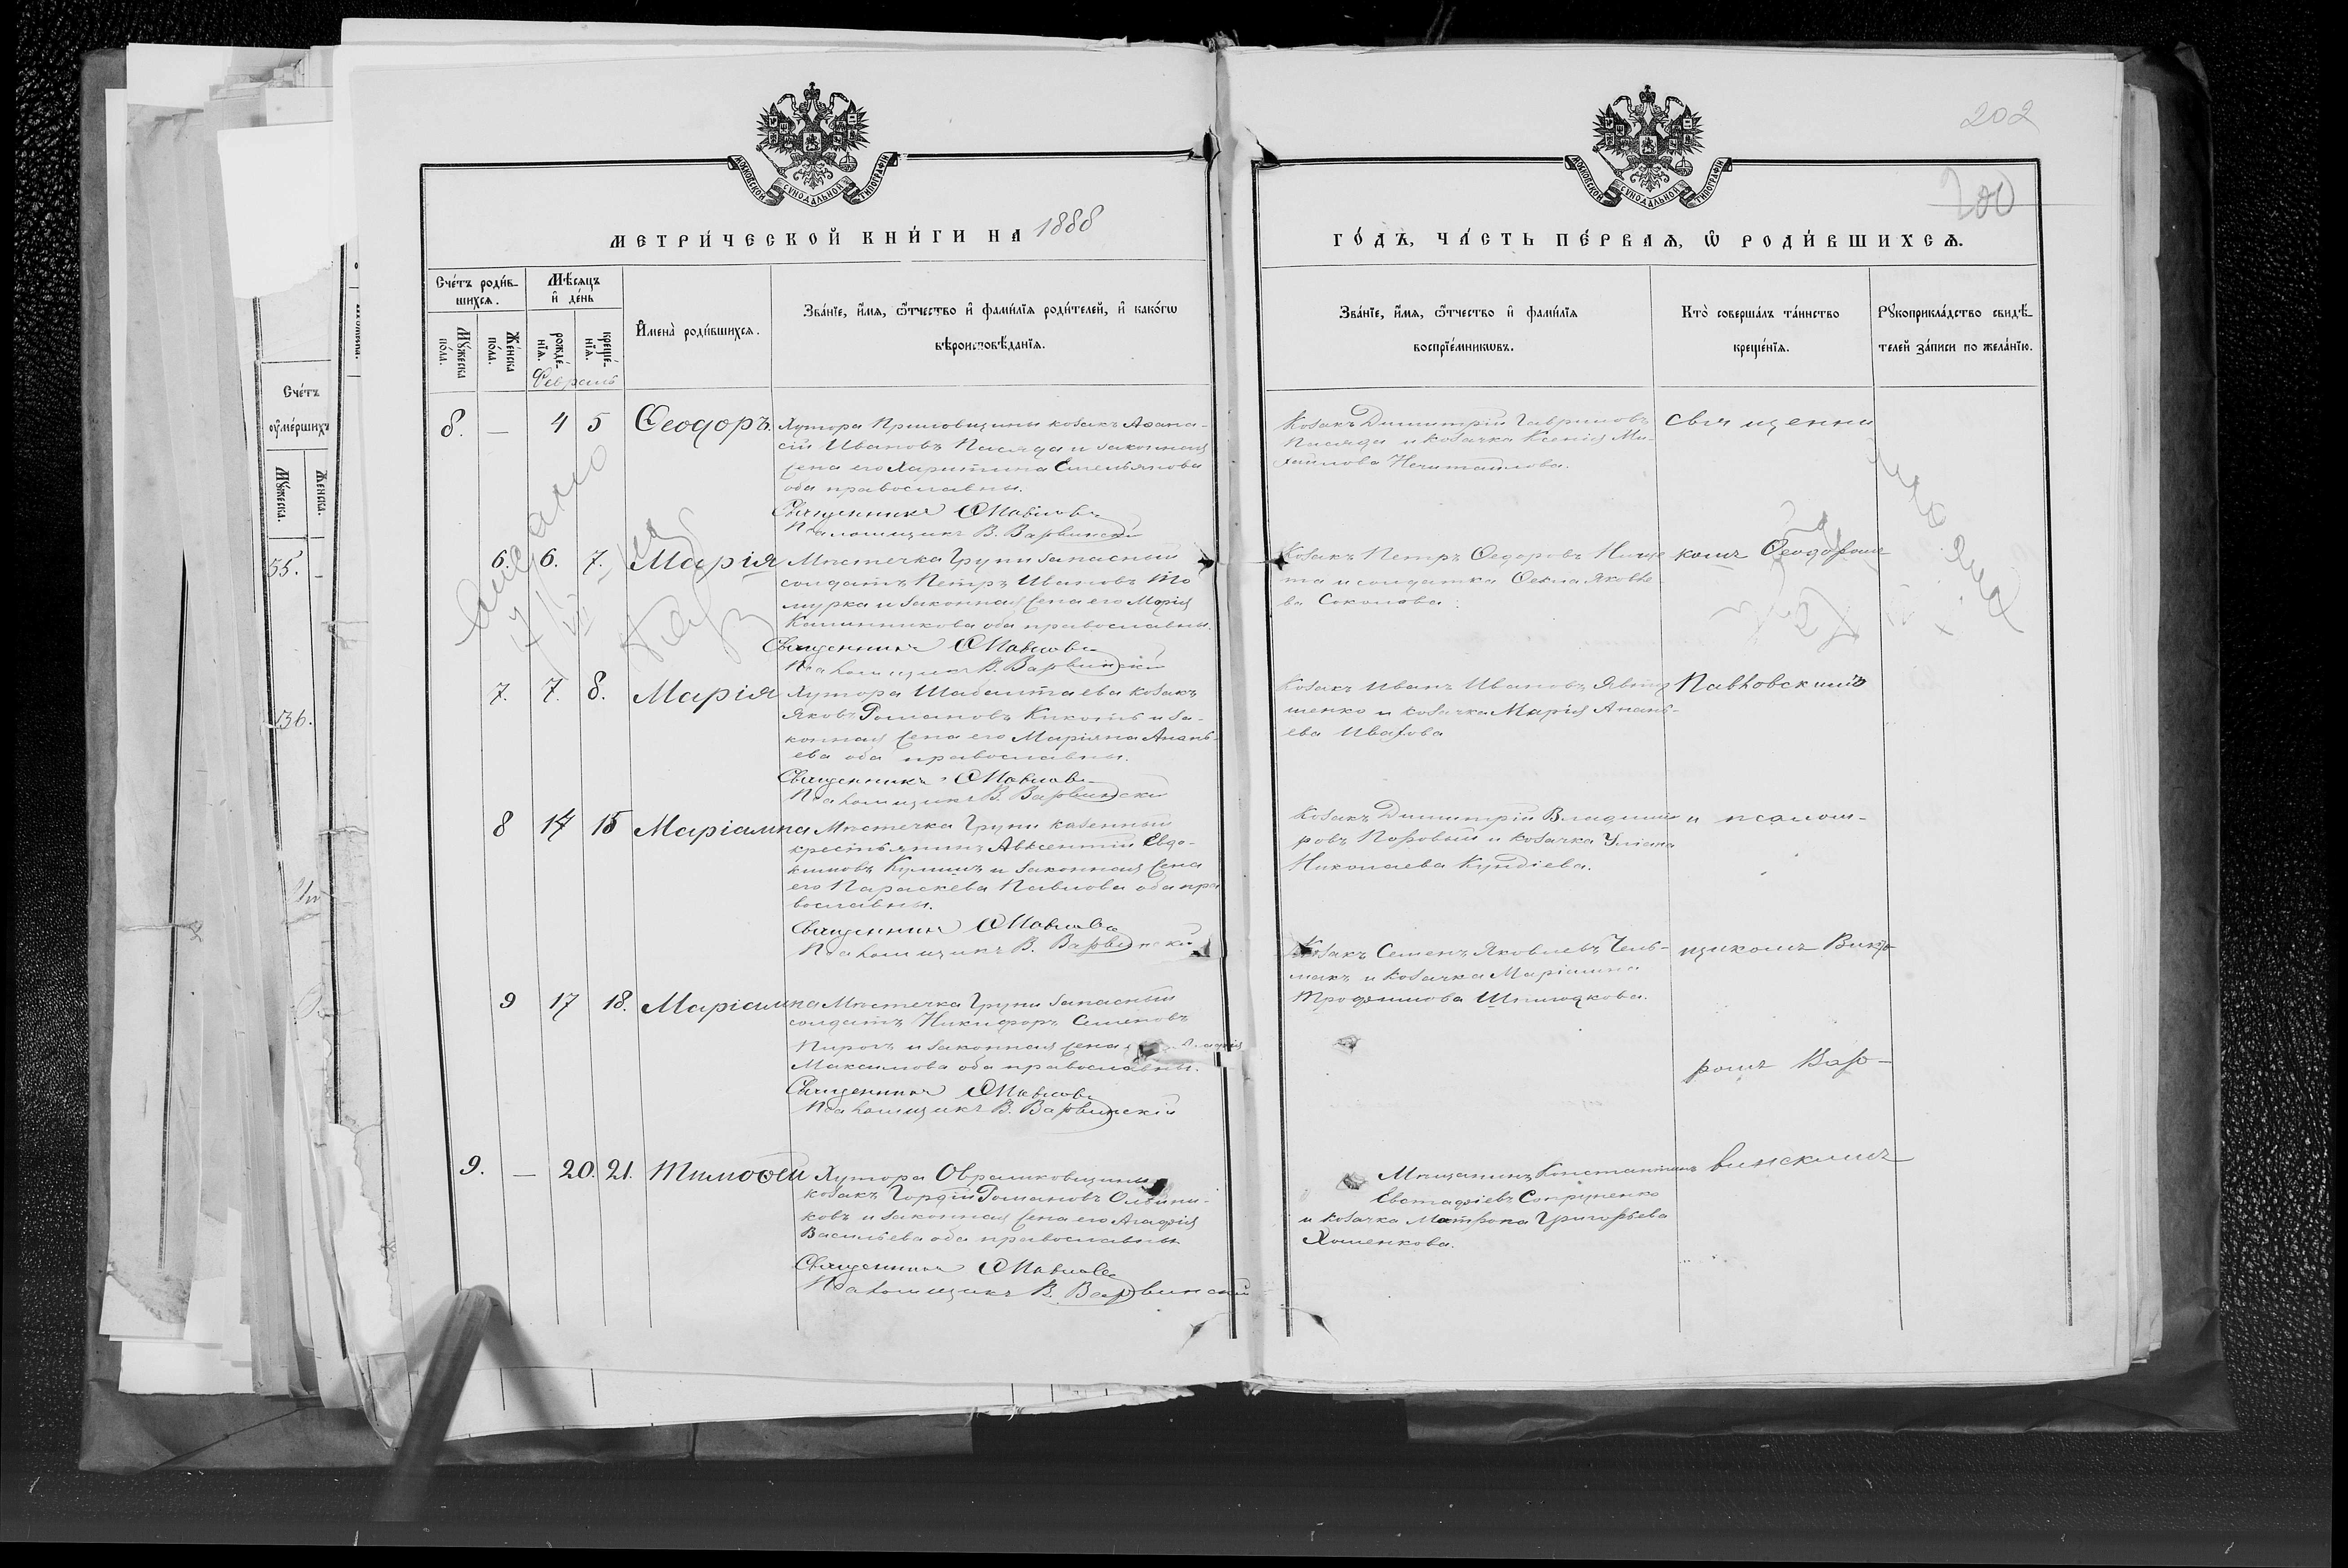 202
200
МОСКОВСКОЙ СѴНОДАЛЬНОЙ ТИПОГРАФІИ
МОСКОВСКОЙ СѴНОДАЛЬНОЙ ТИПОГРАФІИ
МЕТРИ́ЧЕСКОЙ КНИ́ГИ НА 1888
ГО́ДЪ, ЧА́СТЬ ПЕ́РВАѦ, Ѿ РОДИ́ВШИХСѦ.
Сче́тъ роди́в-
шихсѧ.
Мѣ́сѧцъ
и҆ де́нь
Мꙋ́жеска
по́ла.
Же́нска
по́ла.
рожде́-
нїѧ.
креще́-
нїѧ.
И҆мена̀ роди́вшихсѧ.
Зва́нїе, и҆́мѧ, ѻ҆́тчество и҆ фами́лїѧ роди́телей, и҆ како́гѡ
вѣроисповѣ́данїѧ.
Зва́нїе, и҆́мѧ, ѻ҆́тчество и҆ фами́лїѧ
воспрїе́мникѡвъ.
Кто̀ соверша́лъ та́инство
креще́нїѧ.
Рꙋкоприкла́дство свидѣ́-
телей за́писи по жела́нїю.
Февраль
8. — 4 5 Ѳеодоръ.
Хутора Приловщины козакъ Аѳана-
сій Ивановъ Пасяда и законная
жена его Харитина Емельянова
оба православны.
Священникъ Ѳ Павловъ
Псаломщикъ В. Варвинскій
Козакъ Димитрій Гавриловъ
Пасяда и козачка Ксенія Ми-
хайлова Нечитайлова.
Священни
6. 6. 7. Марія
Мѣстечка Груни запасный
солдатъ Петръ Ивановъ
и законная жена его Марія
Калинникова оба православны.
Священникъ Ѳ Павловъ
Псаломщикъ В. Варвинскій
Козакъ Петръ Ѳедоровъ
та и солдатка Ѳекла Яковле
ва Соколова.
комъ Ѳеодоромъ
7. 7. 8. Марія
Хутора Шабалтаева козакъ
Яковъ Романовъ Кикоть и за-
конная жена его Маріяна Анань-
ева оба православны.
Священникъ Ѳ Павловъ
Псаломщикъ В. Варвинскій
Козакъ Иванъ Ивановъ
шенко и козачка Марія Анань-
ева
Павловскимъ
8 14 15 Маріамна
Мѣстечка Груни казенный
крестьянинъ Авксентій Евдо-
кимовъ Кулишъ и законная жена
его Параскева Павлова оба пра
вославны.
Священникъ Ѳ Павловъ
Псаломщикъ В. Варвинскій
Козакъ Димитрій Владими
ровъ и козачка Уліана
Николаева Кундіева.
и псалом-
9 17 18. Маріамна
Мѣстечка Груни запасный
солдатъ Никифоръ Семеновъ
Пирогъ и законная жена
Максимова оба православны.
Священникъ Ѳ Павловъ
Псаломщикъ В. Варвинскій
Козакъ Семенъ Яковлевъ Чель-
макъ и козачка Маріамна
Трофимова
щикомъ Викто
ромъ Вар-
9. — 20. 21. Тимоѳей
Хутора
козакъ Гордій Романовъ Олейни-
ковъ и законная жена его Агафія
Васильева оба православны
Священникъ Ѳ Павловъ
Псаломщикъ В. Варвинскій
Мѣщанинъ Константинъ
Евстафіевъ Сопруненко
и козачка Матрона Григорьева
Хоменкова.
винскимъ
Сче́тъ
ᲂу҆ме́ршихъ
Мꙋ́жеска.
Же́нска.
55.
36.